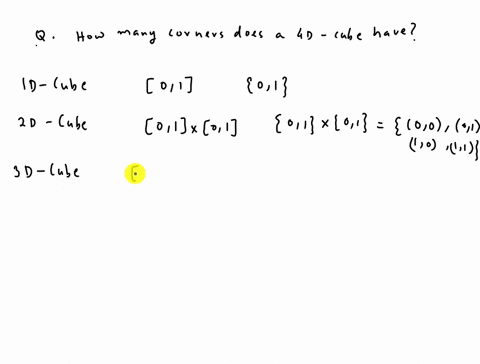 Q. How many corners does a 4D-cube have?
1D-Cube [0,1] {0,1}
2D-Cube [0,1]×[0,1] {0,1}×[0,1} = {(0,0), (0,1)
(1,0), (1,1)}
3D-Cube [